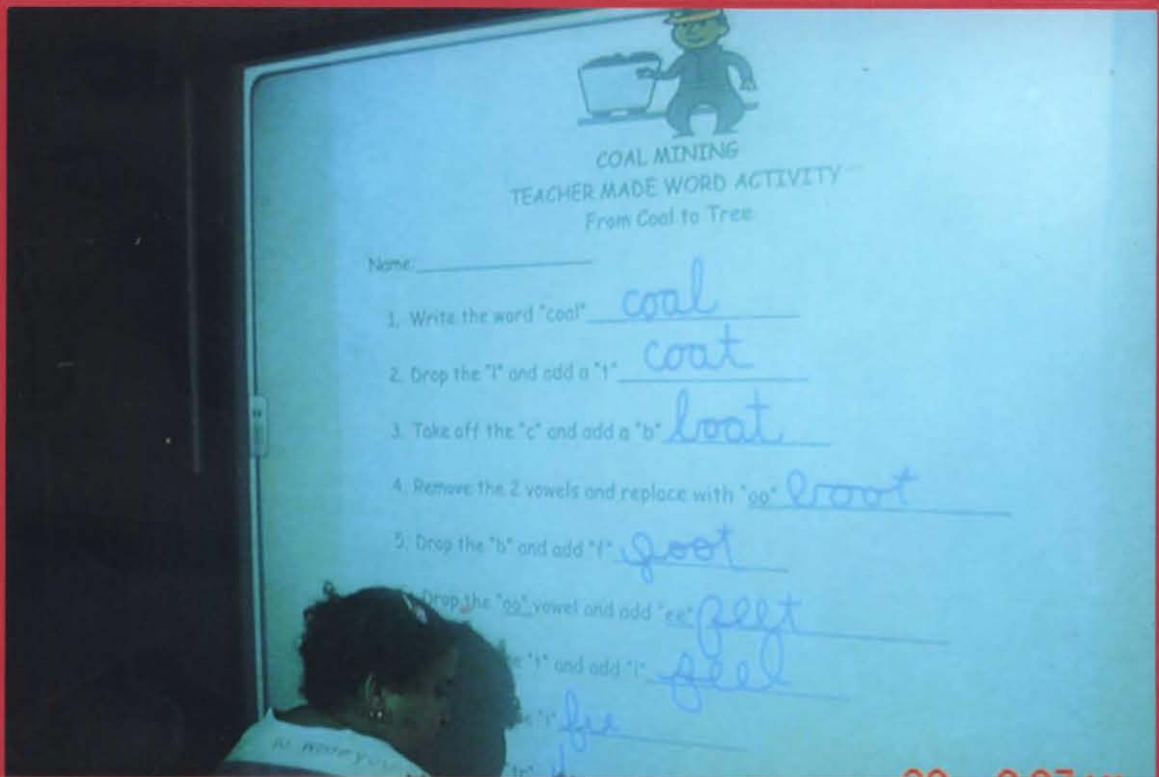 COAL MINING
TEACHER MADE WORD ACTIVITY
From Coal to Tree
Name:
1. Write the word "coal" coal
2. Drop the "l" and add a "t" coat
3. Take off the "c" and add a "b" boat
4. Remove the 2 vowels and replace with "oo" boot
5. Drop the "b" and add "f" foot
Drop the "oo" vowel and add "ee" feet
"t" and add "l" feel
"l" fee
"tr"